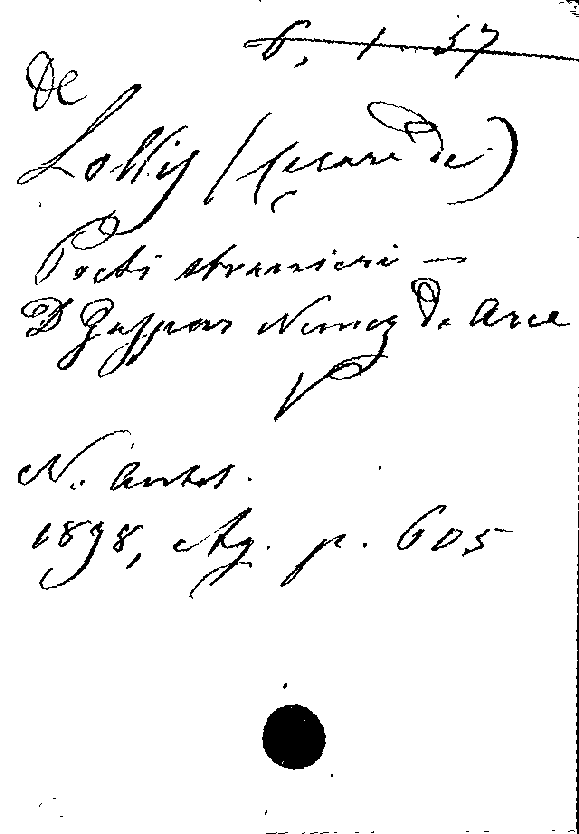 6, 1 37
De
Lollis (Cesare de)
Poeti stranieri —
D Gaspar Nunez de Arce
N. Antol.
1898, Ag. p. 605